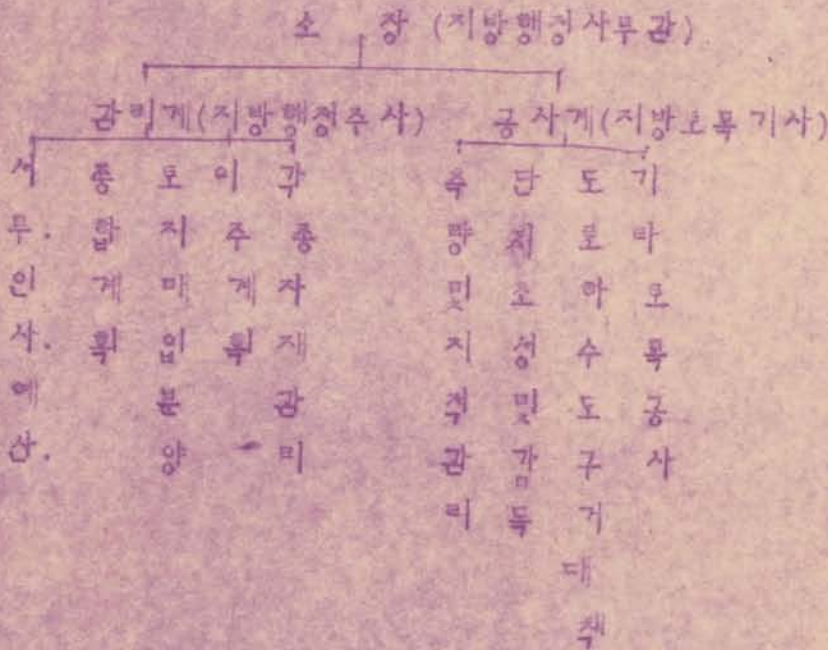 소 장 (지방행정사무관)
관리계(지방행정주사)
서무.인사.예산.
종합계획
토지매입분양
이주계획
각종자재관리
공사계(지방토목기사)
측량및지적관리
단지조성및감독
도로하수도구거대책
기타토목공사